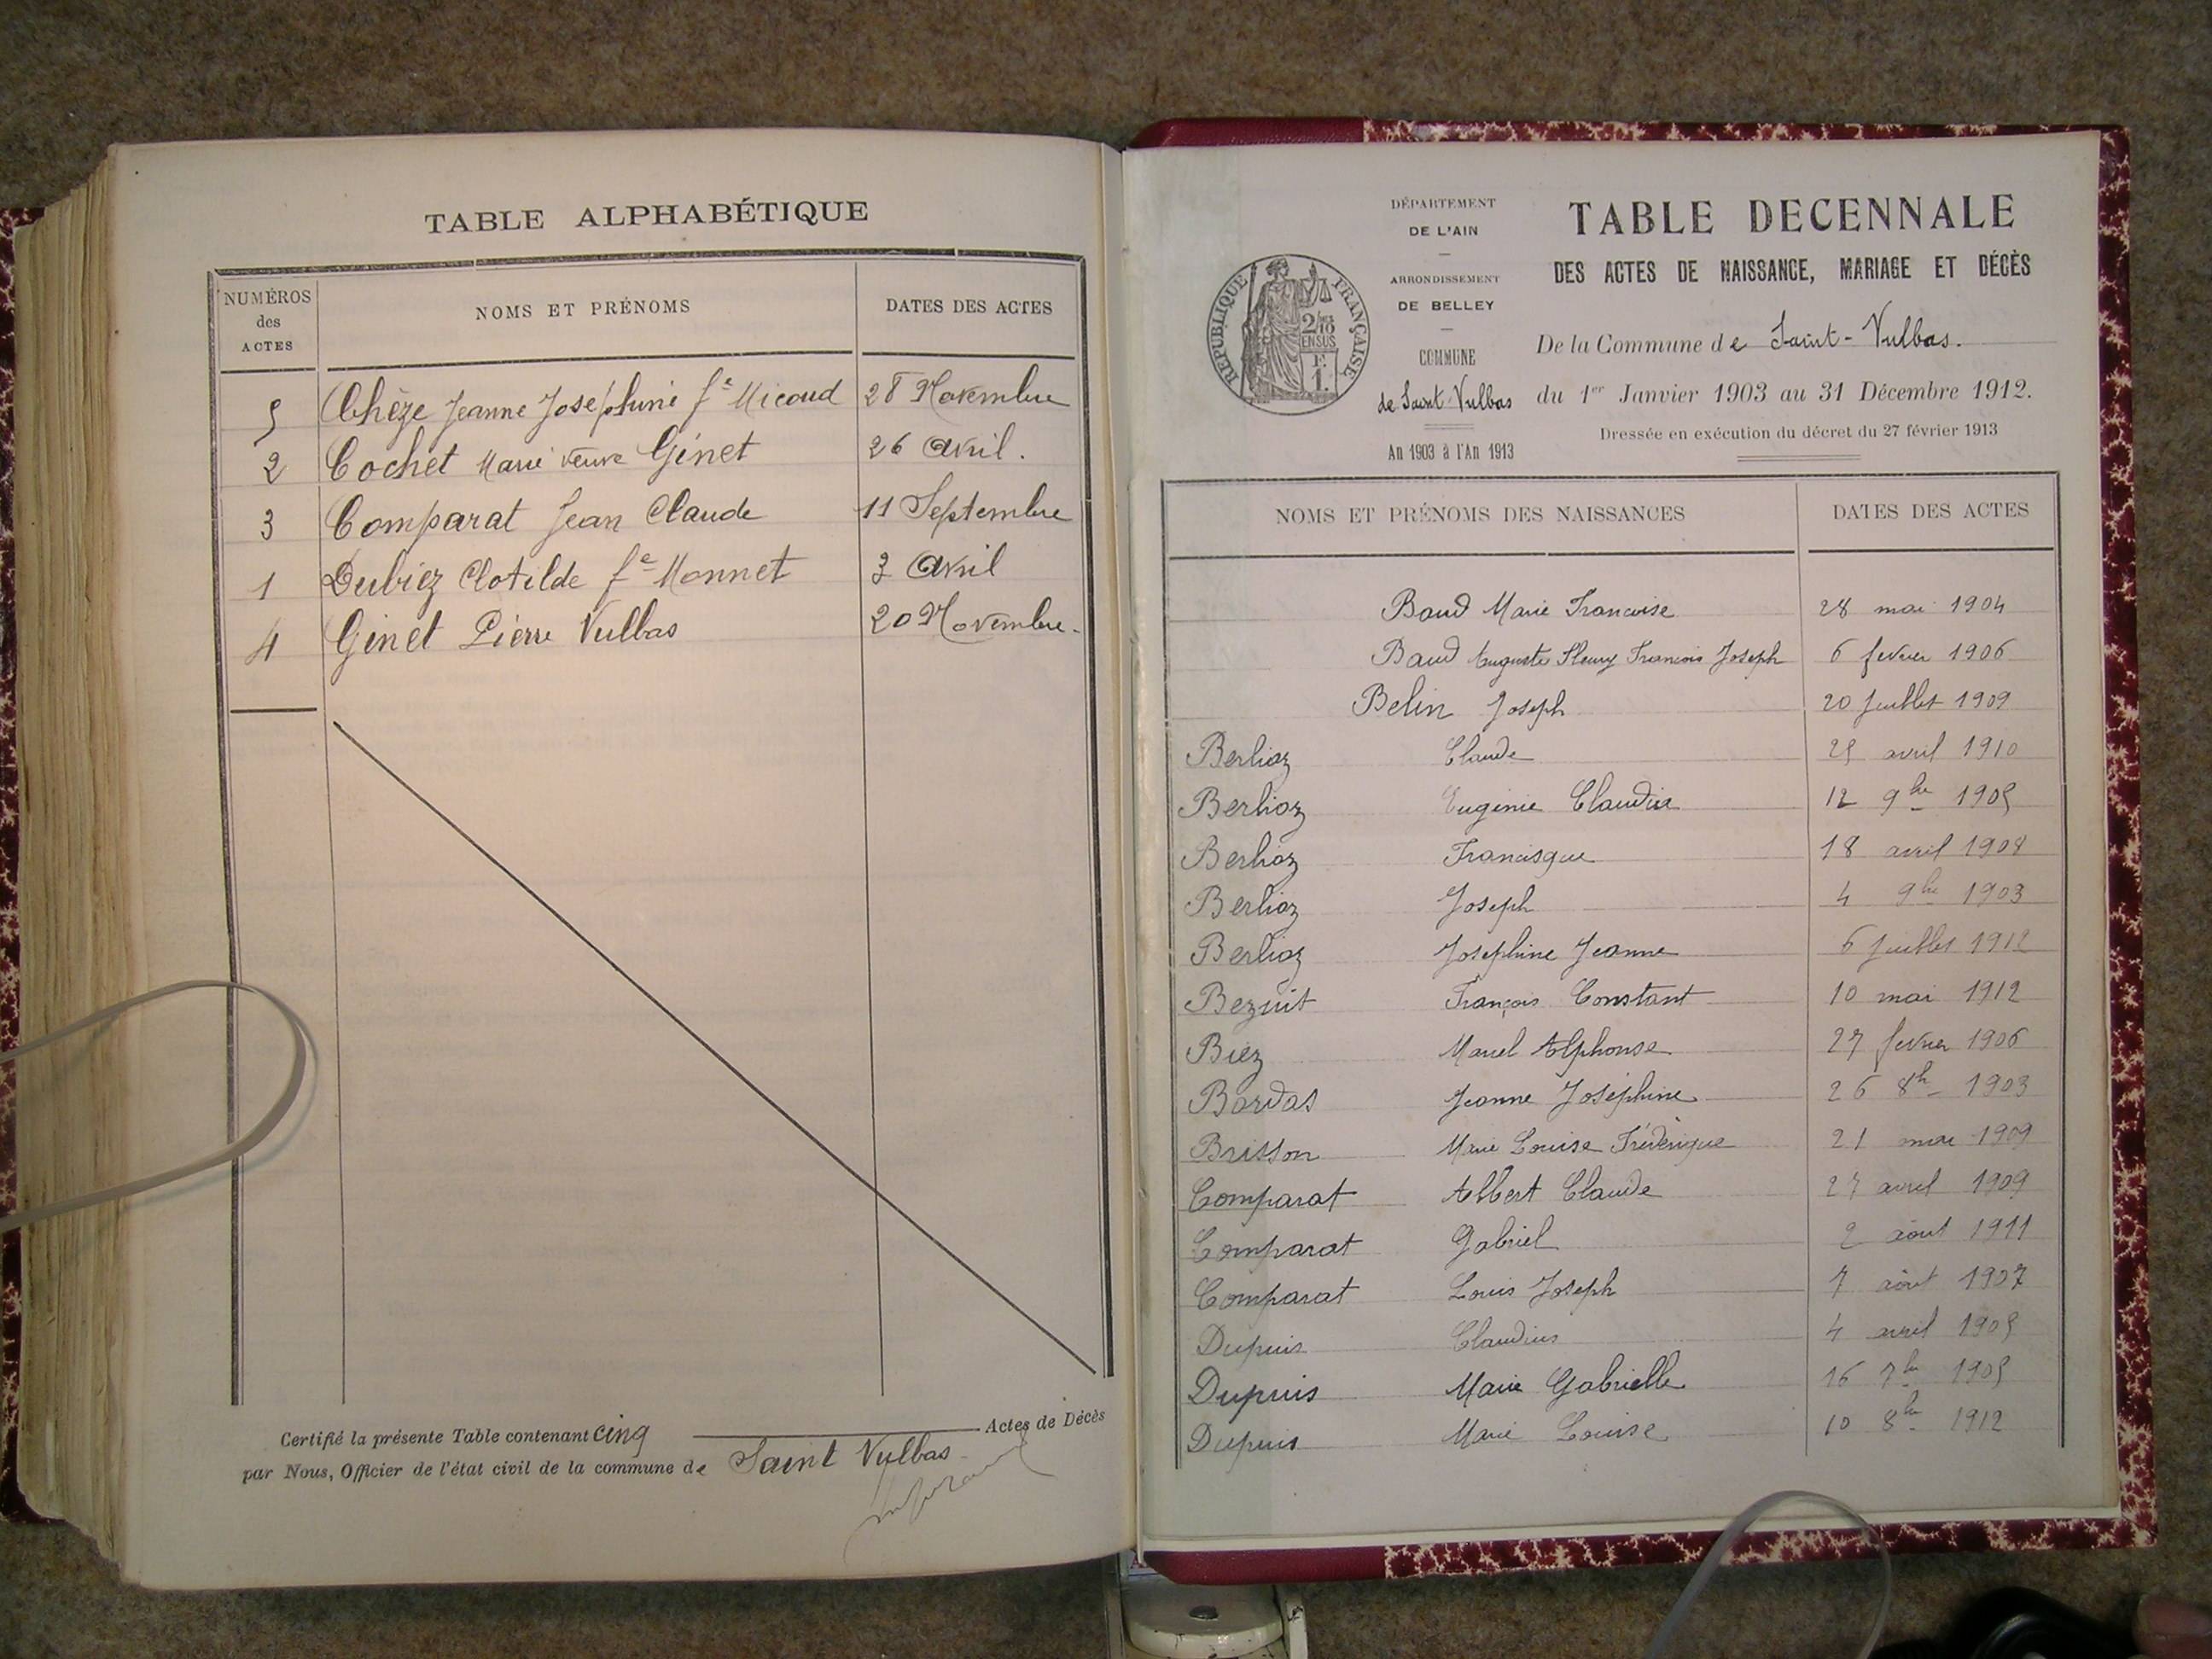 TABLE ALPHABÉTIQUE
NUMÉROS des ACTES
NOMS ET PRÉNOMS
DATES DES ACTES
5 Chèze Jeanne Joséphine fe Micoud 28 Novembre
2 Cochet Marie veuve Ginet 26 avril.
3 Comparat Jean Claude 11 Septembre
1 Dubiez Clotilde fe Monnet 3 avril
4 Ginet Pierre Vulbas 20 Novembre
Certifié la présente Table contenant cinq Actes de Décès
par Nous, Officier de l'état civil de la commune de Saint Vulbas
DÉPARTEMENT
DE L'AIN
ARRONDISSEMENT
DE BELLEY
COMMUNE
de Saint Vulbas
An 1903 à l'An 1913
REPUBLIQUE FRANÇAISE
2/10
EN SUS
F.
1.
TABLE DECENNALE
DES ACTES DE NAISSANCE, MARIAGE ET DÉCÈS
De la Commune de Saint-Vulbas.
du 1er Janvier 1903 au 31 Décembre 1912.
Dressée en exécution du décret du 27 février 1913
NOMS ET PRÉNOMS DES NAISSANCES
DATES DES ACTES
Baud Marie Francoise 28 mai 1904
Baud Auguste Fleury Francois Joseph 6 fevrier 1906
Belin Joseph 20 juillet 1909
Berlioz Claude 25 avril 1910
Berlioz Eugénie Claudia 12 9bre 1905
Berlioz Francisque 18 avril 1908
Berlioz Joseph 4 9bre 1903
Berlioz Joséphine Jeanne 6 juillet 1912
Bezuit François Constant 10 mai 1912
Biez Marcel Alphonse 27 fevrier 1906
Bordas Jeanne Joséphine 26 8b 1903
Brisson Marie Louise Frédérique 21 mai 1909
Comparat Albert Claude 27 avril 1909
Comparat Gabriel 2 aout 1911
Comparat Louis Joseph 7 août 1907
Dupuis Claudius 4 avril 1905
Dupuis Marie Gabrielle 16 7bre 1905
Dupuis Marie Louise 10 8bre 1912